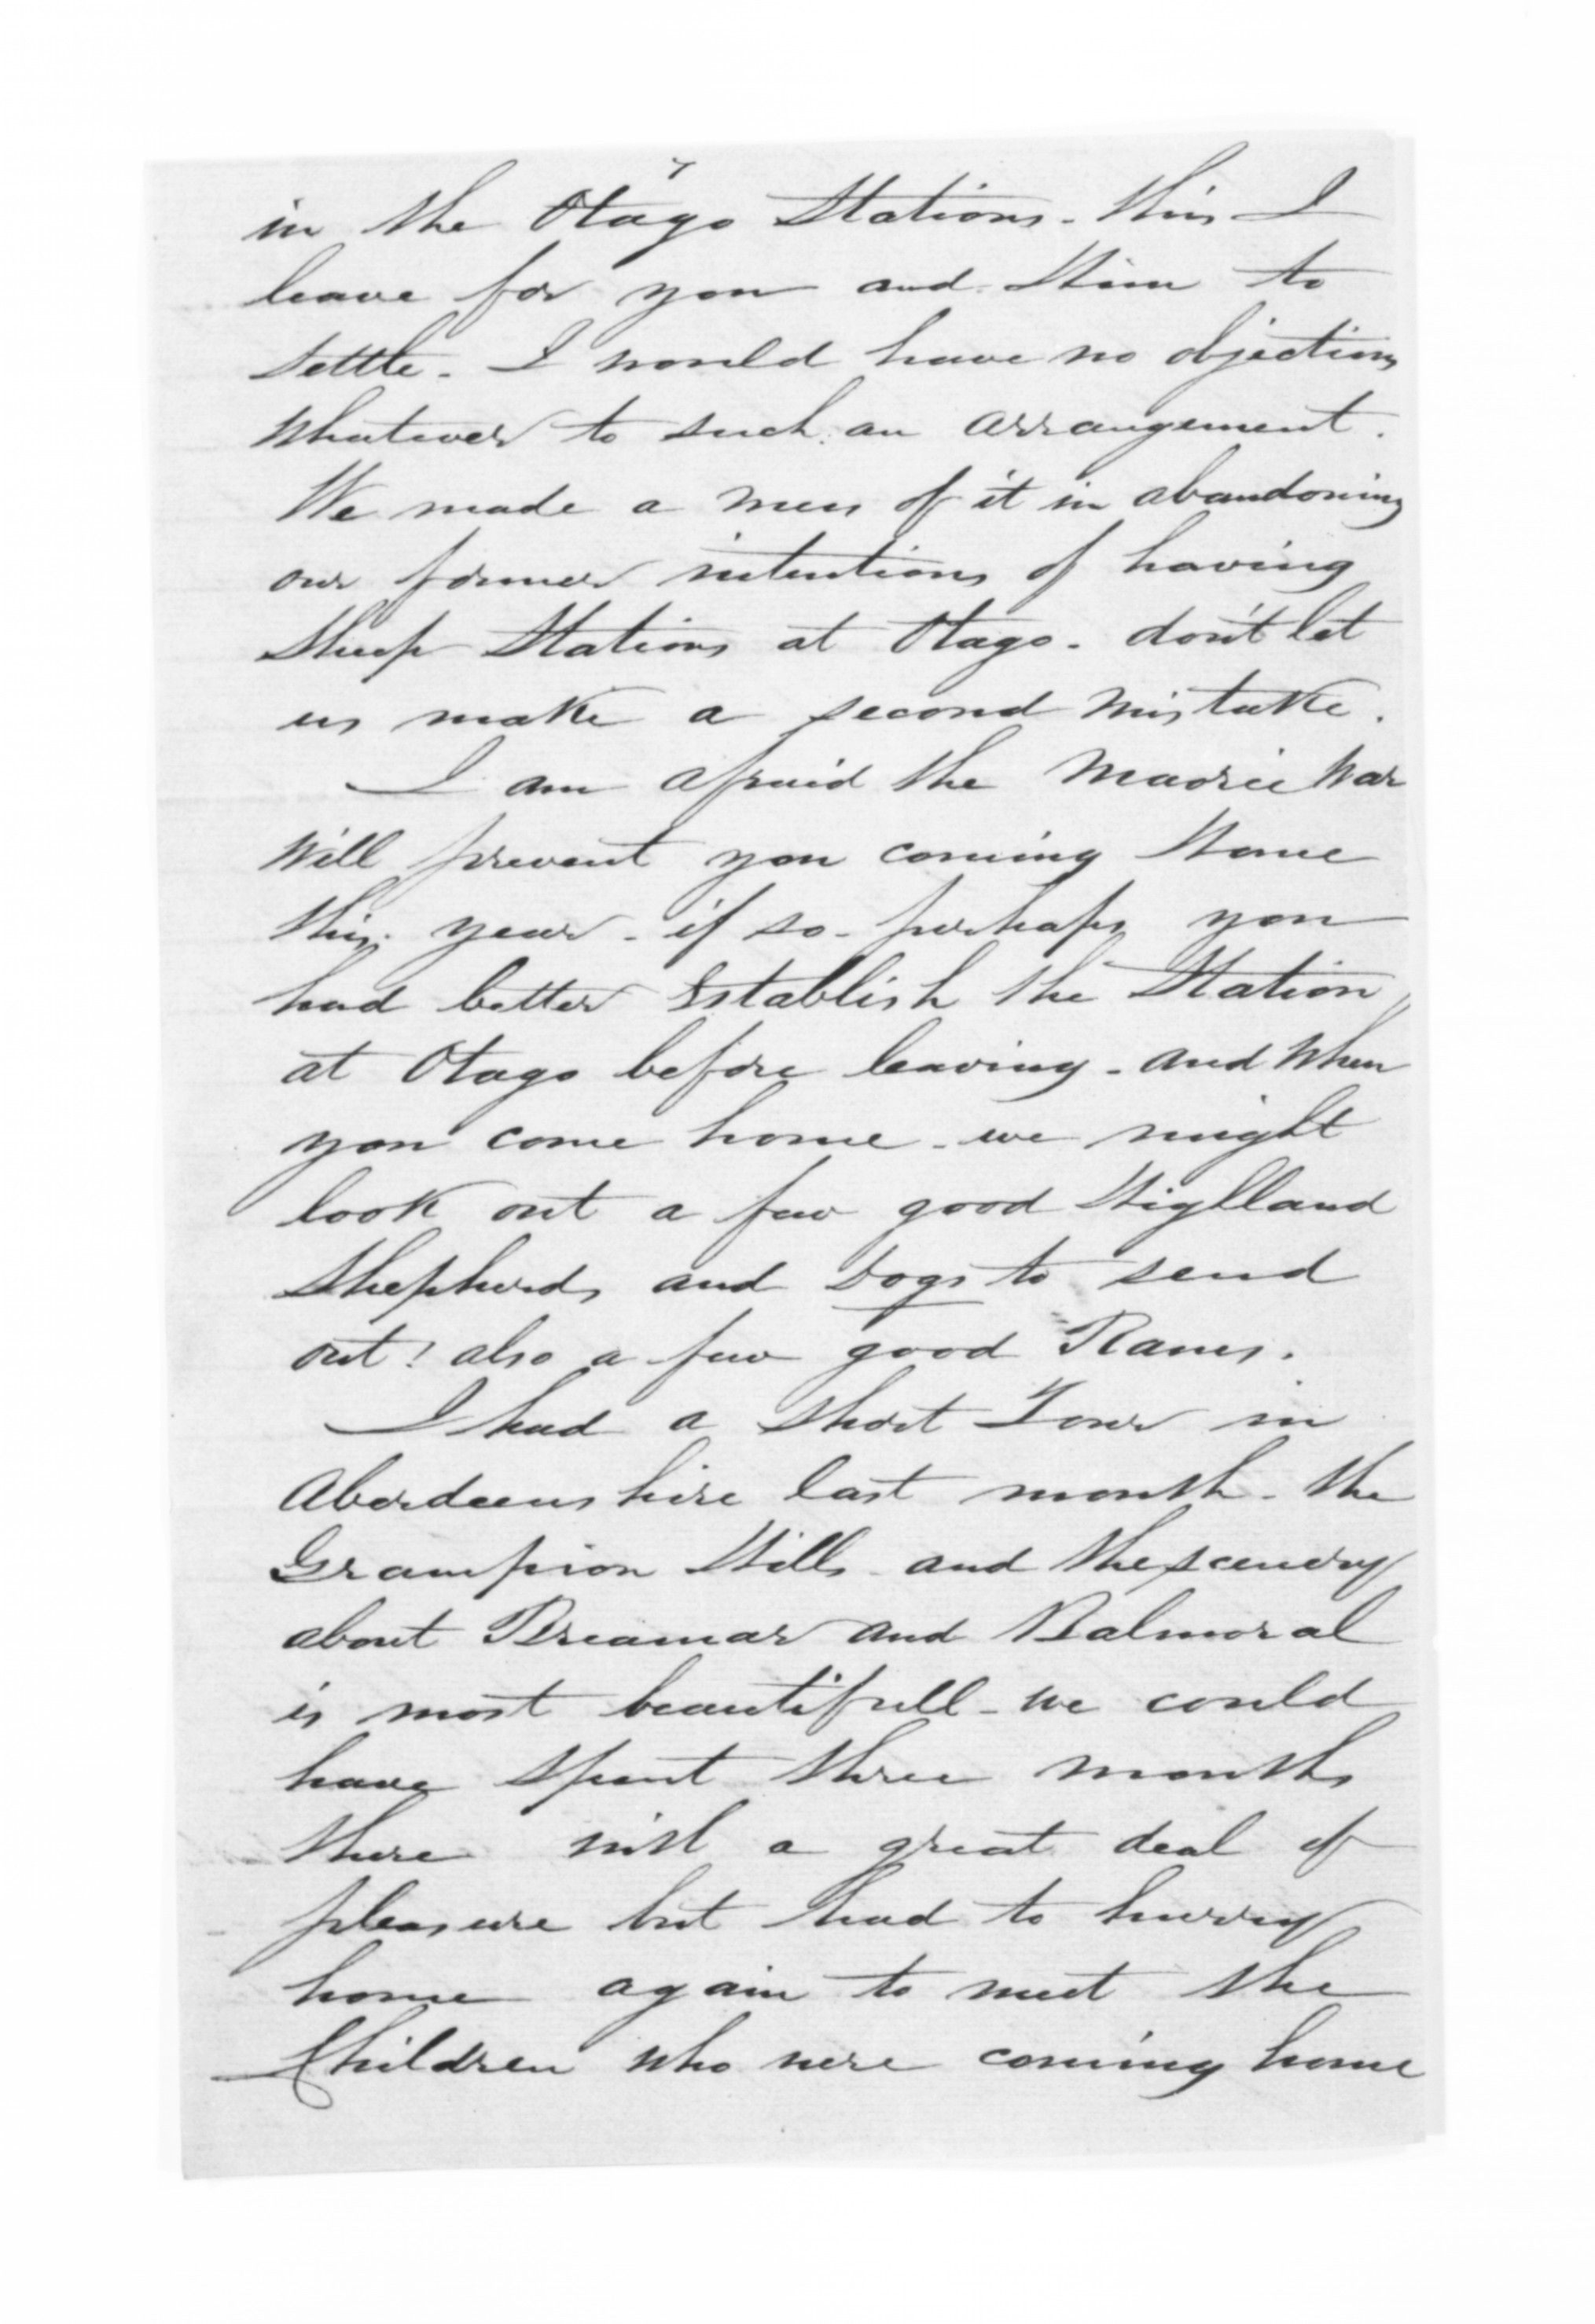 7
in the Otago Stations - this I
leave for you and Him to
settle - I would have no objections
whatever to such an arrangement.
We made a mess of it in abandoning
our former intentions of having
Sheep Stations at Otago - don't let
us make a second mistake.
I am afraid the Maorie War
will prevent you coming Home
this year - if so - perhaps you
had better Establish the Station
at Otago before leaving - and when
you come home - we might
look out a few good Highland
Shepherds and Dogs to send
out! also a few good Rams.
I had a short Tour in
Aberdeenshire last month - the
Grampion Hills and the scenery
about Breamar and Balmoral
is most beautifull - we could
have spent three months
there with a great deal of
pleasure but had to hurry
home again to meet the
Children who were coming home